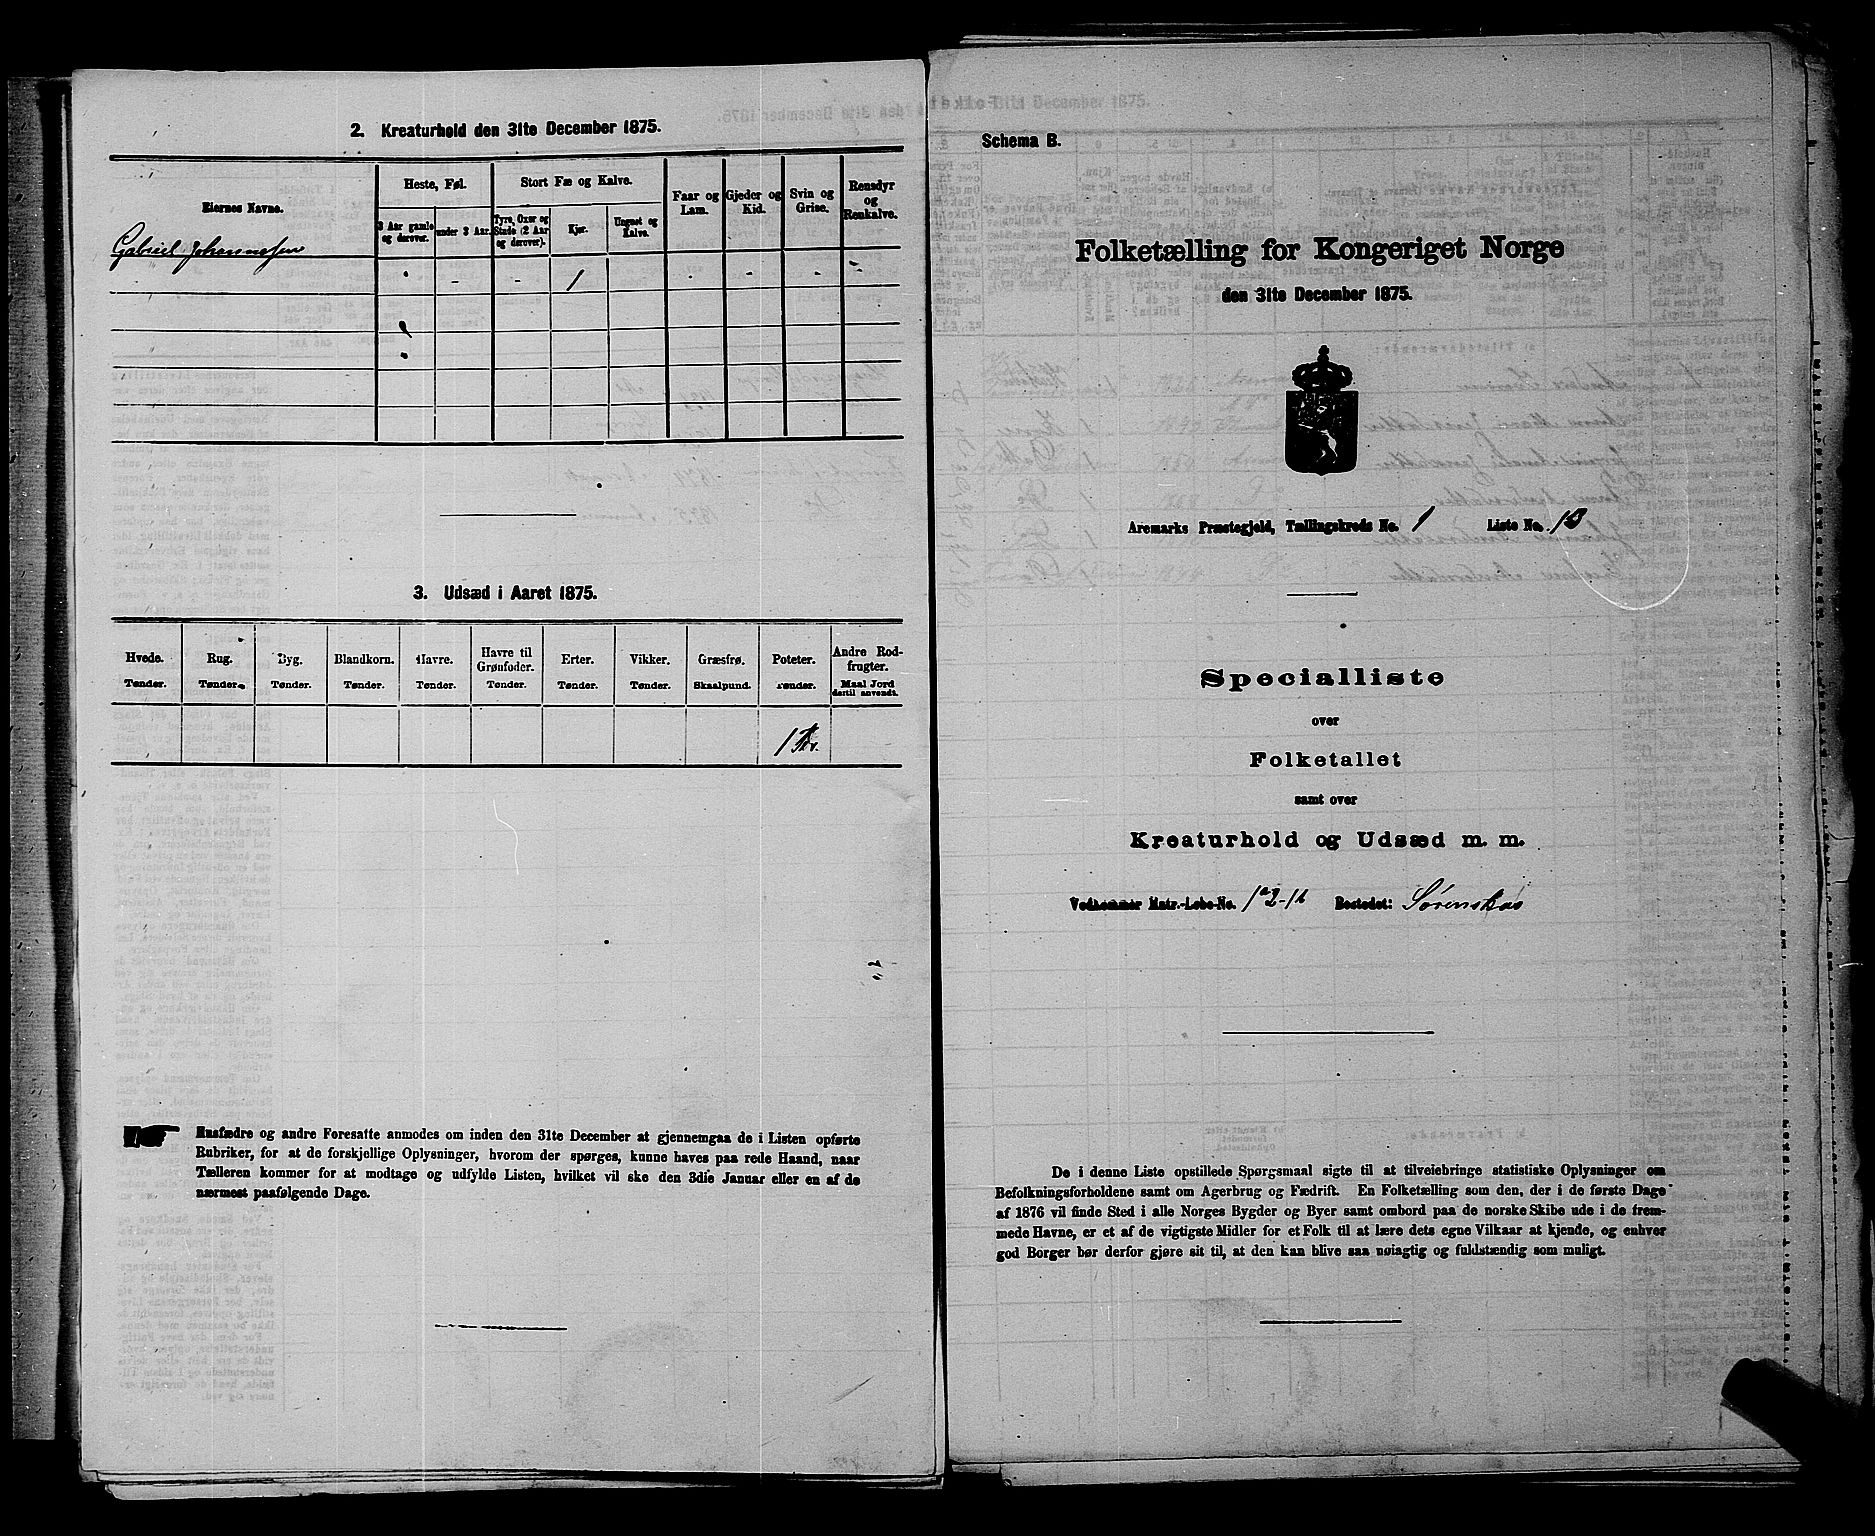 2. Kreaturhold den 31te December 1875.
Eiernes Navne.
Heste, Føl.
Stort Fæ og Kalve.
Faar og Lam.
Gjeder og Kid.
Svin og Grise.
Rensdyr og Renkalve.
3 Aar gamle og derover.
under 3 Aar.
Tyre, Oxer og Stude (2 Aar og derover).
Kjør.
Ungnøt og Kalve.
Gabriel Johannessen
- - 1 - - - -
3. Udsæd i Aaret 1875.
Hvede.
Rug.
Byg.
Blandkorn.
Havre.
Havre til Grønfoder.
Erter.
Vikker.
Græsfrø.
Poteter.
Andre Rodfrugter.
Tønder. Tønder. Tønder. Tønder. Tønder. Tønder. Tønder. Tønder. Skaalpund. Tønder. Maal Jord dertil anvendt.
1 Tdr.
Husfædre og andre Foresatte anmodes om inden den 31te December at gjennemgaa de i Listen opførte
Rubriker, for at de forskjellige Oplysninger, hvorom der spørges, kunne haves paa rede Haand, naar
Tælleren kommer for at modtage og udfylde Listen, hvilket vil ske den 3die Januar eller en af de
nærmest paafølgende Dage.
Schema B.
Folketælling for Kongeriget Norge
den 31te December 1875.
Aremarks Præstegjeld, Tællingskreds No. 1 Liste No. 13
Specialliste
over
Folketallet
samt over
Kreaturhold og Udsæd m. m.
Vedkommer Matr.-Løbe-No. Bostedet: Sørenskas
De i denne Liste opstillede Spørgsmaal sigte til at tilveiebringe statistiske Oplysninger om
Befolkningsforholdene samt om Agerbrug og Fædrift. En Folketælling som den, der i de første Dage
af 1876 vil finde Sted i alle Norges Bygder og Byer samt ombord paa de norske Skibe ude i de frem-
mede Havne, er et af de vigtigste Midler for et Folk til at lære dets egne Vilkaar at kjende, og enhver
god Borger bør derfor gjøre sit til, at den kan blive saa nøiagtig og fuldstændig som muligt.